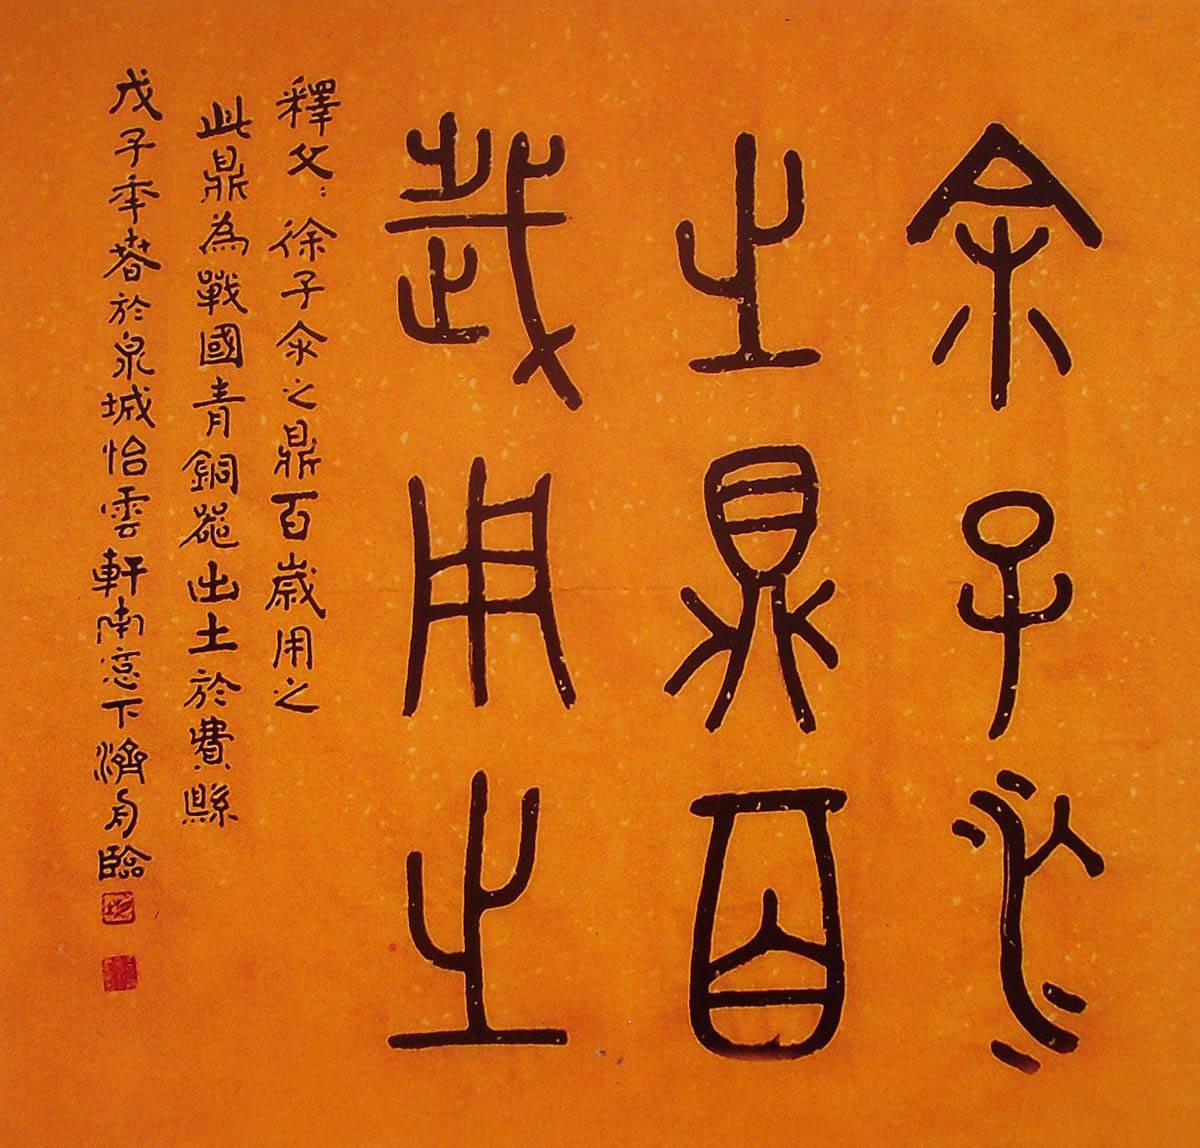 余子汆
之鼎百
歲用之
釋文：徐子汆之鼎百歲用之
此鼎為戰國青銅器出土於費縣
戊子年春於泉城怡雲軒南窓下濟舟臨